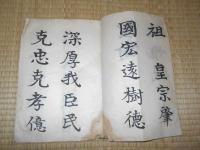 祖皇宗肇
國宏遠樹德
深厚我臣民
克忠克孝億